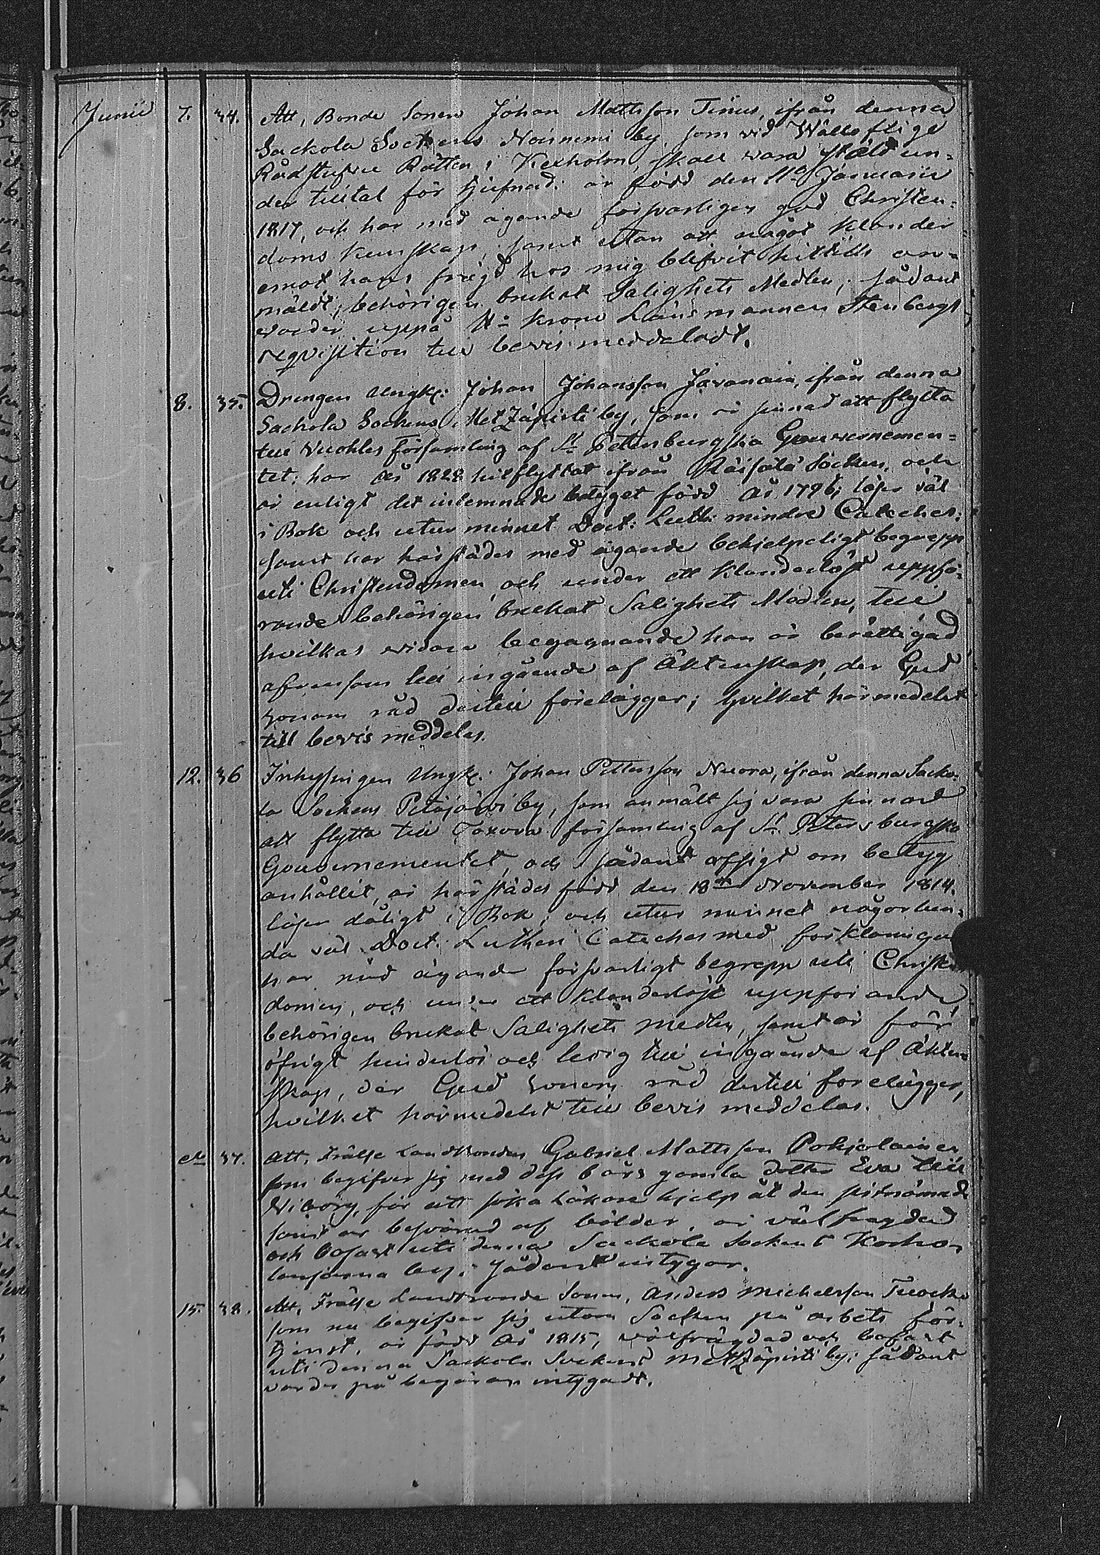 Junii 7. 34. Att, Bonde Sonen Johan Mattsson Tenus, ifrån denna
Sackola Sockens Noisnemi by, som vid Wällofliga
Rådstufvu Rätten i Kexholm skall vara stäld un-
der tilltal för tjufnad. är född den 11te Januarii
1817, och har med ägande försvarligen god Christen-
doms kunskap samt utan att något klander
emot hans frejd hos mig blifvit hittills an-
mäldt, behörigen brukat Salighets Medlen, sådant
warder uppå Hr Krono Länsmannen Stenbergs
requisition till bevis meddeladt.
8. 35. Drengen Ungk: Johan Johansson Javanain, ifrån denna
Sackola Sockens Metzäpirti by, som är sinnad att flytta
till Wuohles Församling af St Petersburgska Gouvernemen-
tet; har År 1828 hitflyttat ifrån Räisälä Socken, och
är enligt det inlemnade betyget född År 1796, läser väl
i Bok och utur minnet Doct: Luth: mindre Cateches:
samt har härstädes med ägande behjelpeligt begrepp
uti Christendomen, och under ett klanderlöst uppfö-
rande behörigen brukat Salighets Medlen, till
hvilkas vidare begagnande han är berättigad
äfvensom till ingående af Äktenskap, der Gud
honom råd dertill förelägger; hvilket härmedelst
till bevis meddelas.
12. 36 Inhysingen Ungk: Johan Pettersson Nuora, ifrån denna Sacko-
la Sockens Petäjärvi by, som anmält sig vara sinnad
att flytta till Toxova församling af St Petersburgska
Gouvernementet och sådant afsigt om betyg
anhållit, är härstädes född den 18de November 1814.
läser dåligt i Bok, och utur minnet någorlun-
da väl Doct. Lutheri Cateches med förklaringen
har med ägande försvarligt begrepp uti Christen-
domen, och under ett klanderlöst uppförande
behörigen brukat Salighets medlen, samt är för
öfrigt hinderlös och ledig till ingående af Äkten-
skap, der Gud honom råd dertill förelägger,
hvilket härmedelst till bevis meddelas.
37. Att, Frälse Landbonden Gabriel Mattsson Pohjolainen
som begifver sig med dess 6 års gamla dotter Eva till
Wiborg, för att söka Läkare hjelp åt den sistnämnde
som är besvärad af bölder, är välfrejdad
och bofast uti denna Sackola Sockens
by; sådant intygar.
15. 38. Att, Frälse Landbonde Sonen, Anders Michelsson
som nu begifver sig utom Socken på arbets för-
tjenst, är född År 1815, välfrägdad och bofast
uti denna Sackola Sockens Metzäpirti by; sådant
varder på begäran intygadt.